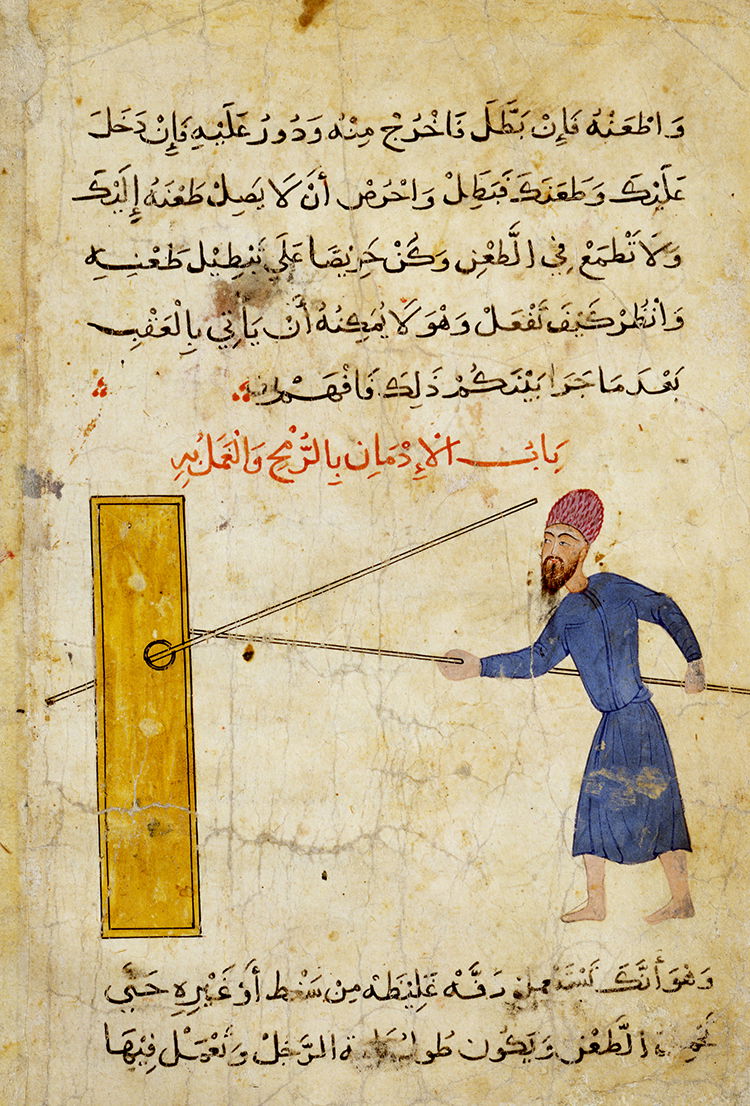 وَاطْعَنْهُ فَإِنْ بَطَّلَ فَاخْرُجْ مِنْهُ وَدُورُ عَلَيْهِ فَإِنْ دَخَلَ
عَلَيْكَ وَطَعَنَكَ فَبَطِلْ وَاحْرُصْ أَنْ لَا يَصِلْ طَعْنَهُ إِلَيْكَ
وَلَا تَطْمَعْ فِي الطَّعْنِ وَكُنْ حَرِيْصًا عَلَي تَبْطِيْلِ طَعْنِهِ
وَانْظُرْ كَيْفَ تَفْعَلْ وَهْوَ لَا يُمْكِنُهُ أَنْ يَأْتِي بِالْعَقْبِ
بَعْدَ مَا جَرَا بَيْنَكُمْ ذَلِكَ فَافْهَمْ
بَابُ الْإِدْمَانِ بِالرُّمْحِ وَالْعَمَلُ بِهِ
وَهْوَ أَنَّكَ دَفَّهْ غَلِيْظَهْ مِنْ سَنْط أَوْ غَيْرِهِ حَتَّي
الطَّعْنِ وَيَكُونَ الرَّجُلْ وَتَعْمَلْ فِيْهَا